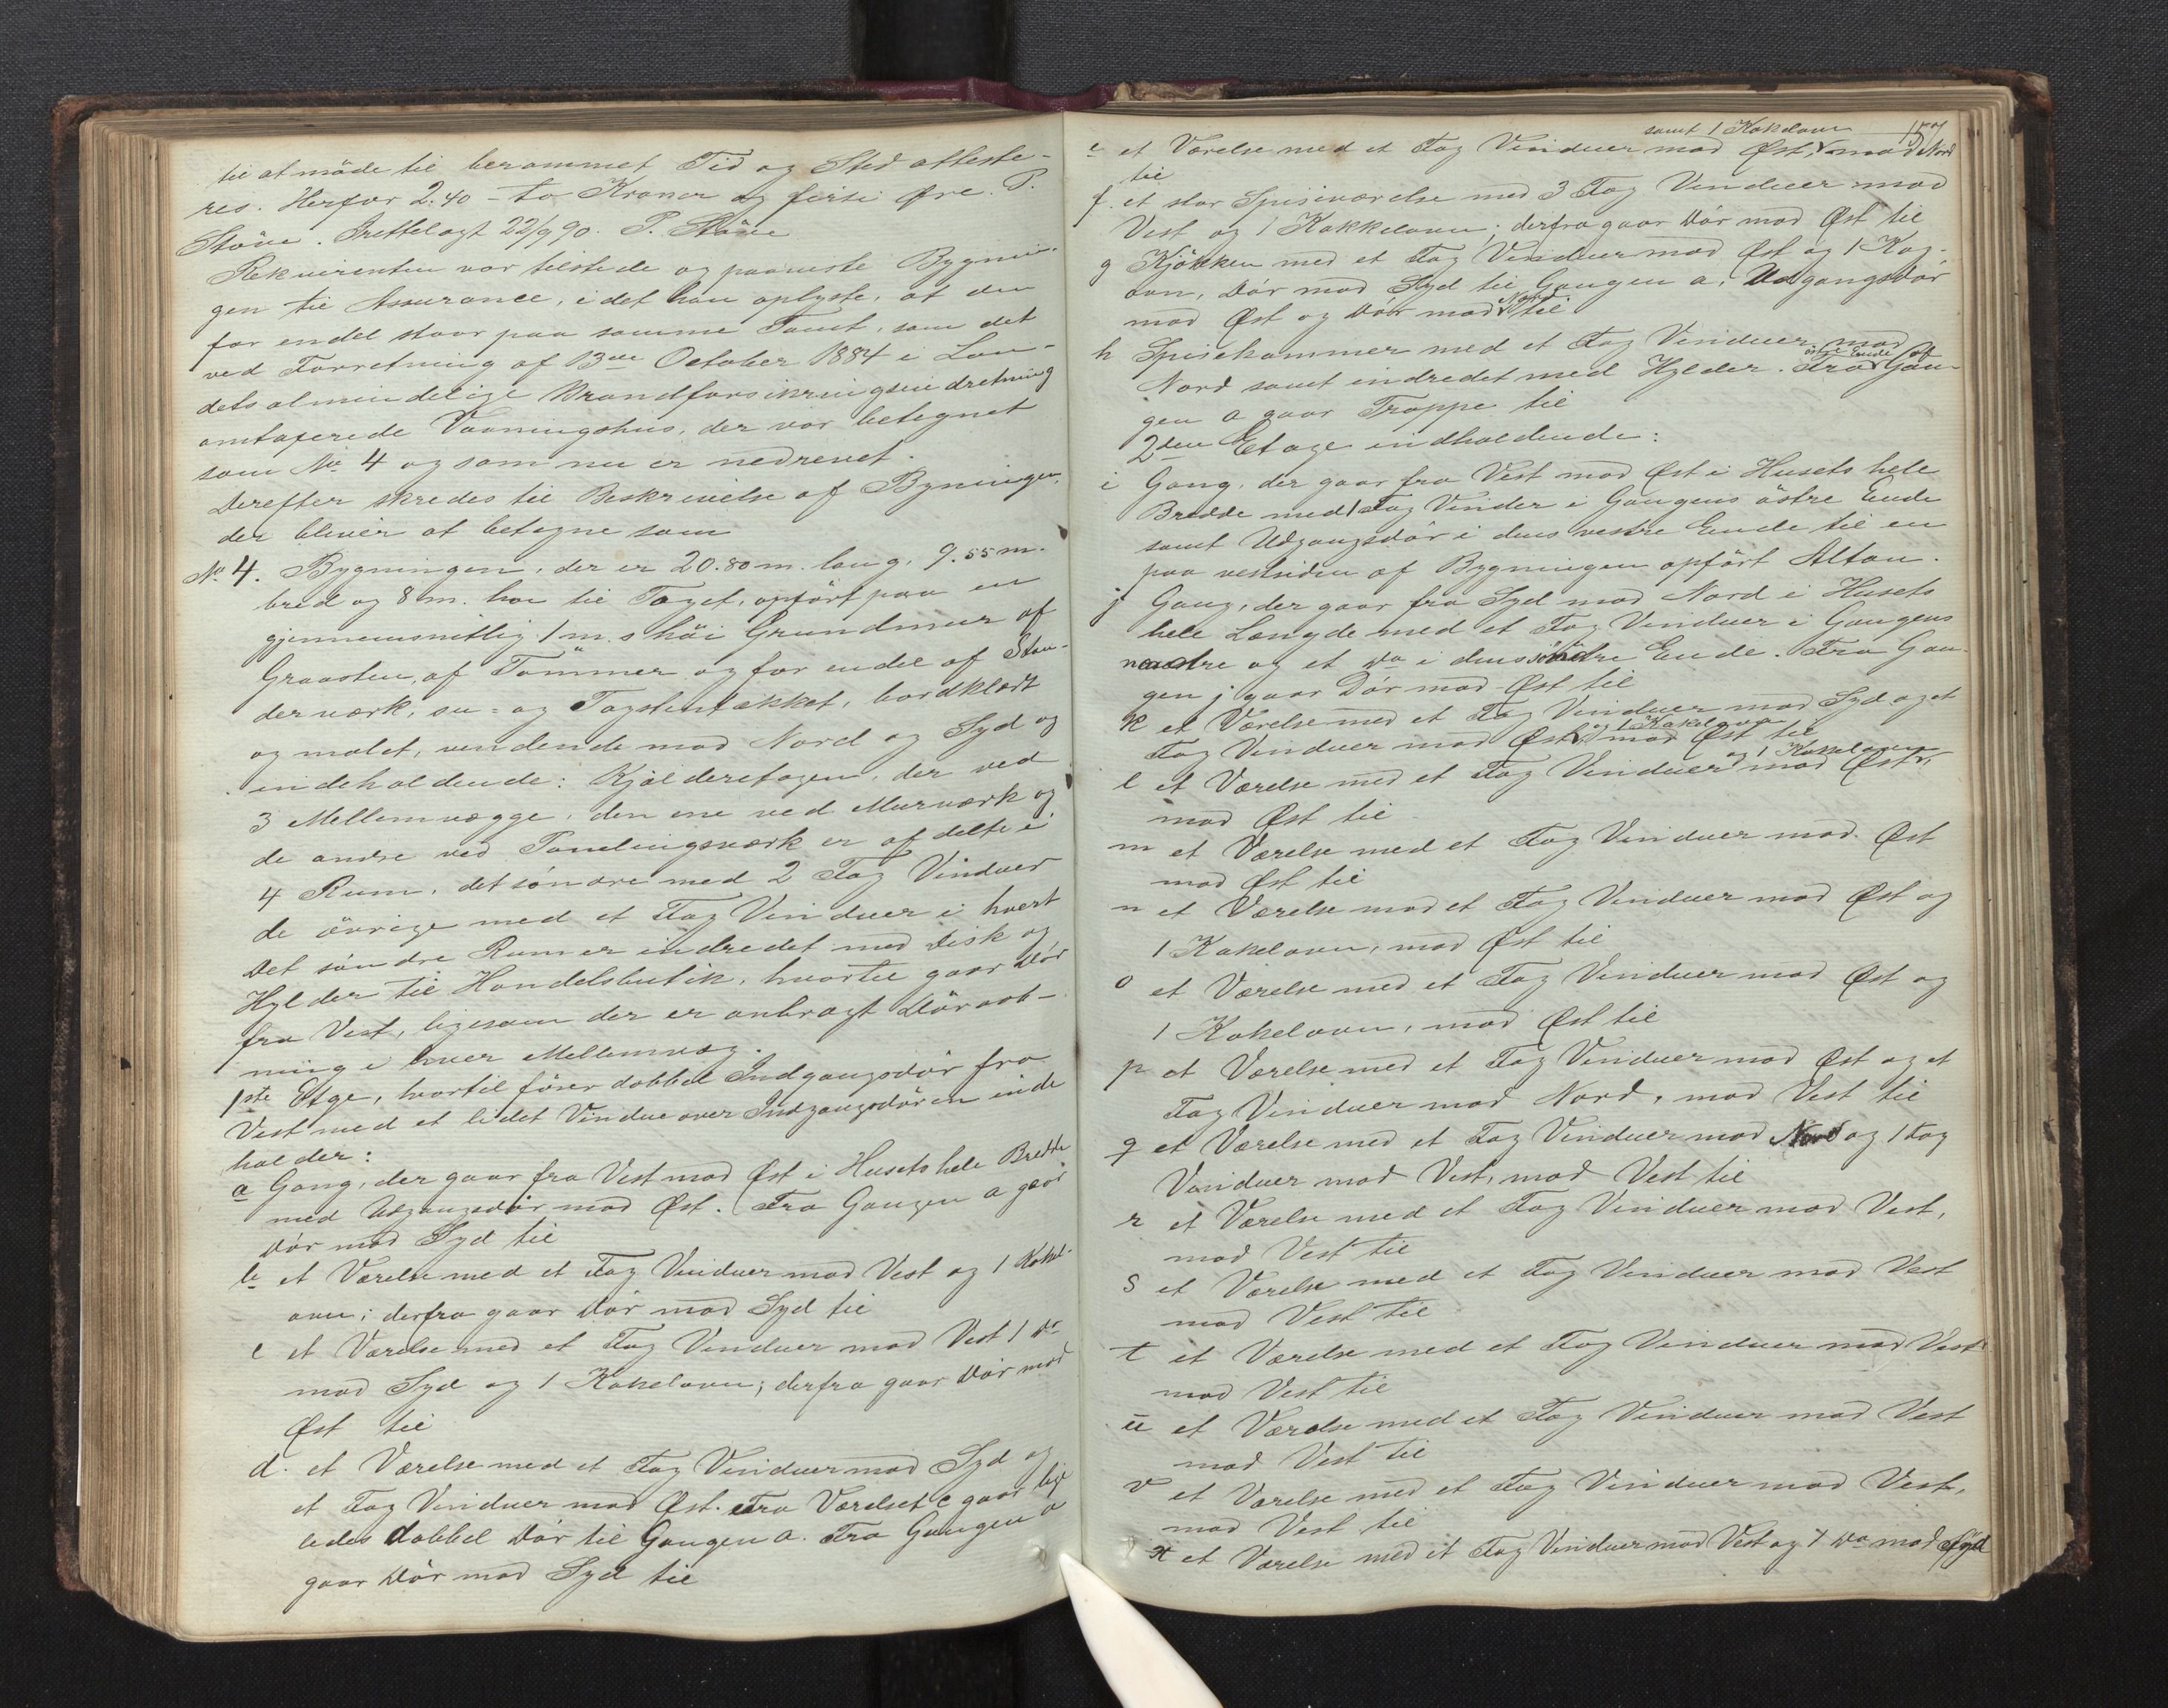 til at møde til berammet Tid og Sted atteste-
res. Herfor 2.40 - to Kroner og firti Øre. P.
Støve. Fremlagt 22/9 90. P. Støve
Rekvirenten var tilstede og paaviste Bygnin-
gen til Assurance, idet han oplyste, at den
for endel staar paa samme Tomt, som det
ved Forretning af 13de October 1884 i Lan-
dets almindelige Brandforsikringsindretning
omtaxerede Vaaningshus, der var betegnet
som No 4 og som nu er nedrevet.
Derefter skredes til Beskrivelse af Bygningen,
der bliver at betegne som
No 4. Bygningen, der er 20.80 m. lang, 9.55 m.
bred og 8 m. høi til Taget, opført paa en
gjennemsnitlig 1 m.s høi Grundmur af
Graasten, af Tømmer og for endel af Stan-
derværk, su- og Tagstentækket, bordklædt
og malet, vendende mod Nord og Syd og
indeholdende: Kjælderetagen, der ved
3 Mellemvægge, den ene ved Murværk og
de andre ved Panelingsværk er afdelte i
4 Rum, det søndre med 2 Fag Vinduer
de øvrige med et Fag Vinduer i hvert
Det søndre Rum er indredet med Disk og
Hylder til Handelsbutik, hvortil gaar Dør
fra Vest, ligesom der er anbragt Døraab-
ning i hver Mellemvæg.
1ste Etge, hvortil fører dobbel Indgangsdør fra
Vest med et lidet Vindue over Indgangsdøren inde
holder:
a Gang, der gaar fra Vest mod Øst i Husets hele Bredde
med Udgangsdør mod Øst. Fra Gangen a gaar
Dør mod Syd til
b et Værelse med et Fag Vinduer mod Vest og 1 Kakel-
ovn; derfra gaar Dør mod Syd til
c et Værelse med et Fag Vinduer mod Vest 1 do
mod Syd og 1 Kakelovn; derfra gaar Dør mod
Øst til
d. et Værelse med et Fag Vinduer mod Syd og
et Fag Vinduer mod Øst. Fra Værelset c gaar lige
ledes dobbel Dør til Gangen a. Fra Gangen a
gaar Dør mod Syd til
samt 1 Kakelovn 157
e et Værelse med et Fag Vinduer mod Øst, mod Nord
til
f. et stor Spiseværelse med 3 Fag Vinduer mod
Vest og 1 Kakkelovn; derfra gaar Dør mod Øst til
g Kjøkken med et Fag Vinduer mod Øst og 1 Kog-
ovn, Dør mod Syd til Gangen a, Udgangsdør
mod Øst og Dør mod Nord til
h Spisekammer med et Fag Vinduer mod
Nord samt indredet med Hylder. Fra østre Ende af Gan-
gen a gaar Trappe til
2den Etage indholdende:
i Gang, der gaar fra Vest mod Øst i Husets hele
Bredde med 1 Fag Vinder i Gangens østre Ende
samt Udgangsdør i dens vestre Ende til en
paa vestsiden af Bygningen opført Altan.
j Gang, der gaar fra Syd mod Nord i Husets
hele Længde med et Fag Vinduer i Gangens
nordre og et do i dens søndre Ende. Fra Gan-
gen j gaar Dør mod Øst til
k et Værelse med et Fag Vinduer mod Syd og et
Fag Vinduer mod Øst og 1 Kakelovn mod Øst til
l et Værelse med et Fag Vinduer mod Øst og 1 Kakelovn,
mod Øst til
m et Værelse med et Fag Vinduer mod Øst
mod Øst til
n et Værelse med et Fag Vinduer mod Øst og
1 Kakelovn, mod Øst til
o et Værelse med et Fag Vinduer mod Øst og
1 Kakelovn, mod Øst til
p et Værelse med et Fag Vinduer mod Øst og et
Fag Vinduer mod Nord, mod Vest til
q et Værelse med et Fag Vinduer mod Nord og 1 Fag
Vinduer mod Vest, mod Vest til
r et Værelse med et Fag Vinduer mod Vest,
mod Vest til
s et Værelse med et Fag Vinduer mod Vest
mod Vest til
t et Værelse med et Fag Vinduer mod Vest
mod Vest til
u et Værelse med et Fag Vinduer mod Vest
mod Vest til
v et Værelse med et Fag Vinduer mod Vest,
mod Vest til
x et Værelse med et Fag Vinduer mod Vest og 1 do mod Syd